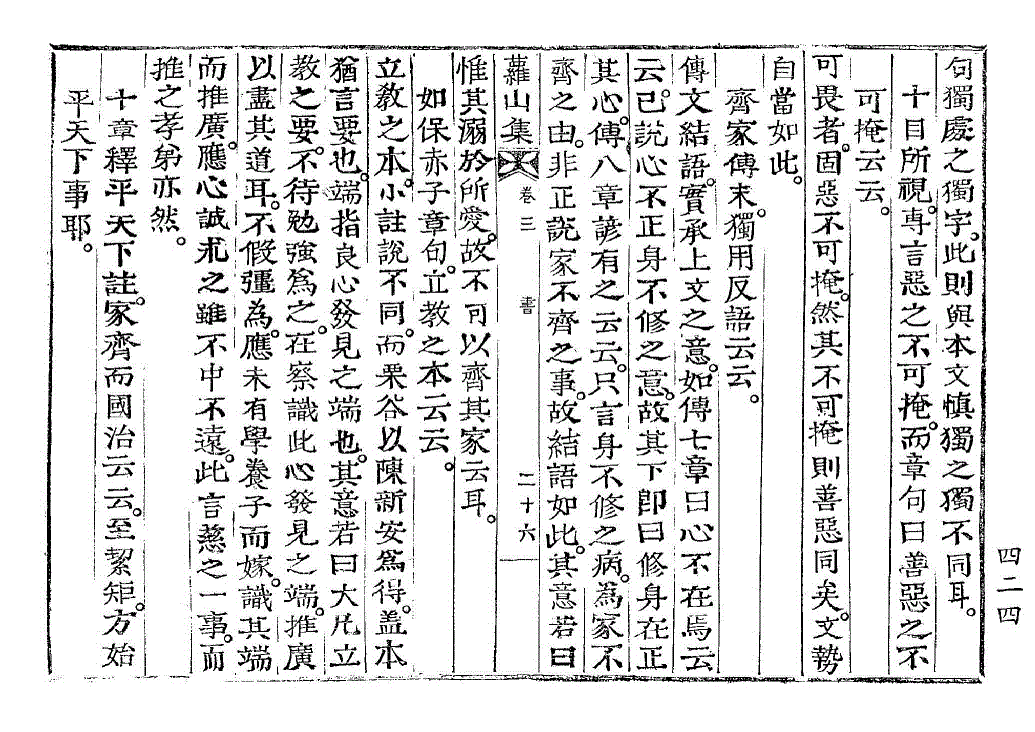 句獨處之獨字。此則與本文愼獨之獨不同耳。
十目所視。專言惡之不可掩。而章句曰善惡之不
可掩云云。
可畏者。固惡不可掩。然其不可掩則善惡同矣。文勢
自當如此。
齊家傳末。獨用反語云云。
傳文結語。實承上文之意。如傳七章曰心不在焉云
云。已說心不正身不修之意。故其下卽曰修身在正
其心。傳八章諺有之云云。只言身不修之病。爲家不
齊之由。非正說家不齊之事。故結語如此。其意若曰
蘿山集 卷三 書 二十六
惟其溺於所愛。故不可以齊其家云耳。
如保赤子章句。立敎之本云云。
立敎之本。小註說不同。而果谷以陳新安爲得。盖本
猶言要也。端指良心發見之端也。其意若曰大凡立
敎之要。不待勉强爲之。在察識此心發見之端。推廣
以盡其道耳。不假彊爲。應未有學養子而嫁。識其端
而推廣。應心誠求之雖不中不遠。此言慈之一事。而
推之孝弟亦然。
十章釋平天下註。家齊而國治云云。至絜矩。方始
平天下事耶。
四二四